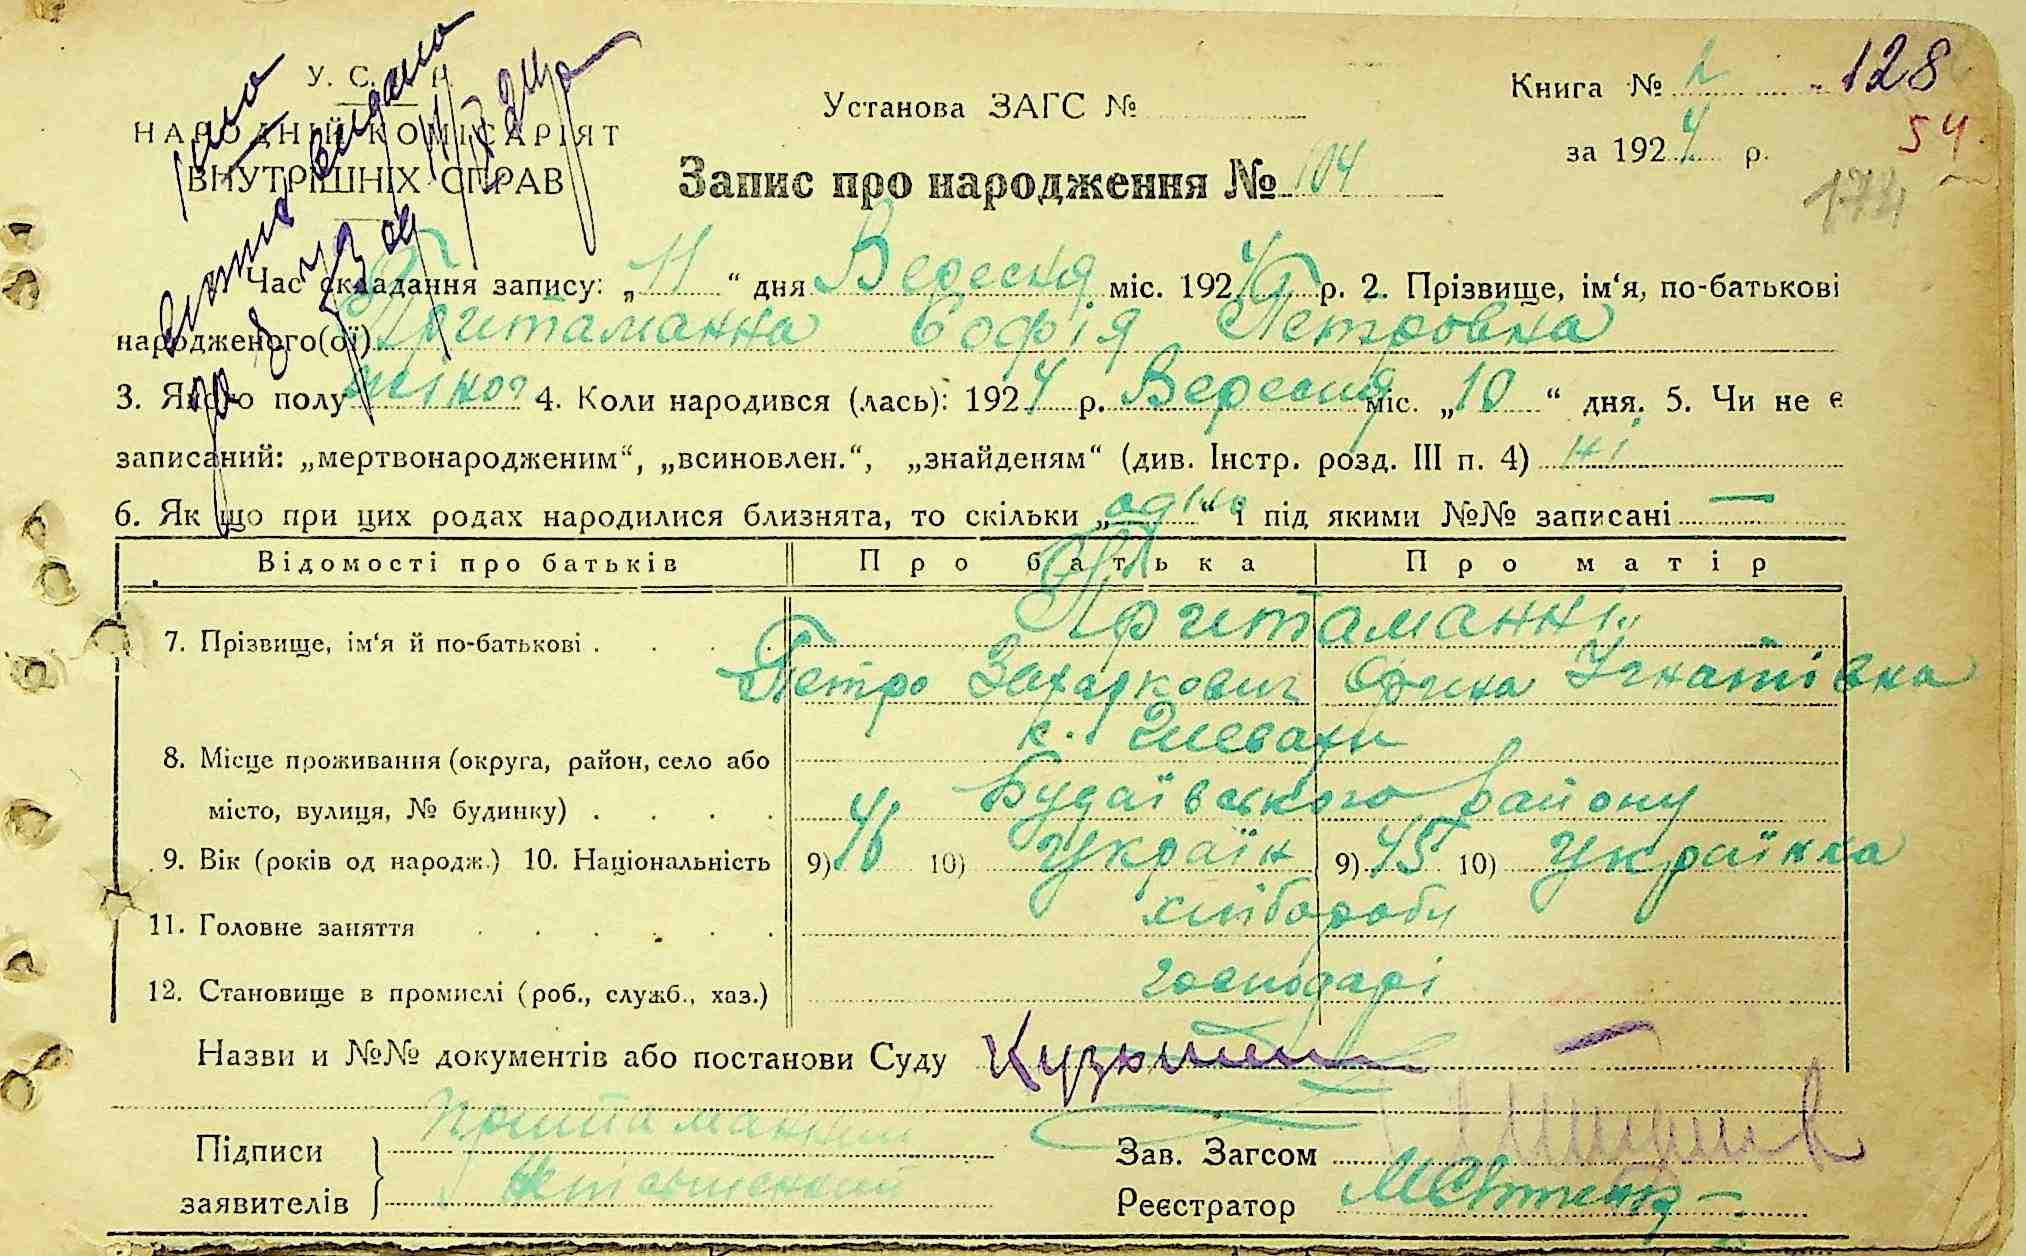 У. С. Р. Р.
НАРОДНІЙ КОМІСАРІЯТ
ВНУТРІШНІХ СПРАВ
Установа ЗАГС №
Книга № 2
128
за 1924 р.
54
174
Запис про народження № 104
Час складання запису: „11“ дня Вересня міс. 1924 р. 2. Прізвище, ім‘я, по-батькові
народженого(ої) Притаманна Софія Петровна
3. Якого полу жіноч 4. Коли народився (лась): 1924 р. Вересня міс. „10“ дня. 5. Чи не є
записаний: „мертвонародженим“, „всиновлен.“, „знайденям“ (див. Інстр. розд. III п. 4) ні
6. Як що при цих родах народилися близнята, то скільки „одно“ і під якими №№ записані —
Відомості про батьків Про батька Про матір
7. Прізвище, ім‘я й по-батькові . . . . Притаманні
Петро Захаркович Орина Ігнатівна
8. Місце проживання (округа, район, село або
місто, вулиця, № будинку) . . . . Будаївського району
9. Вік (років од народж.) 10. Національність 9) 46 10) Україн 9) 45 10) Українка
11. Головне заняття . . . . . . хлібороби
12. Становище в промислі (роб., служб., хаз.) господарі
Назви и №№ документів або постанови Суду
Підписи
заявителів
Притаманний
Зав. Загсом
Реєстратор